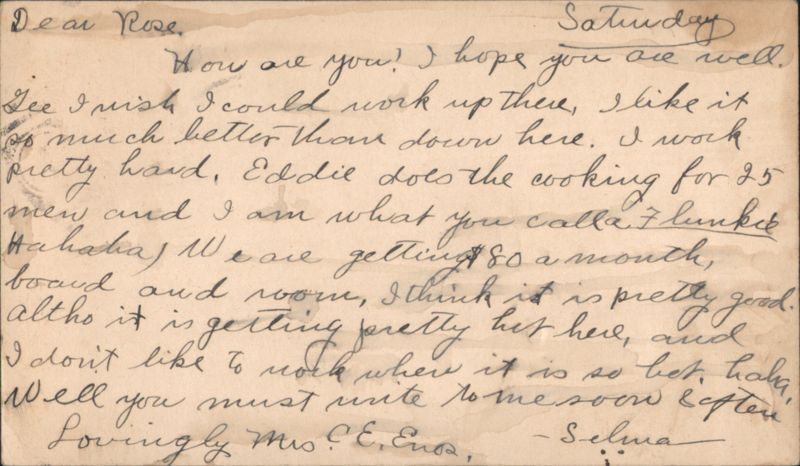 Dear Rose. Saturday
How are you? I hope you are well.
Gee I wish I could work up there, I like it
so much better than down here. I work
pretty hard. Eddie does the cooking for 25
men and I am what you call a Flunkie
Hahaha) We are getting $80 a month,
board and room, I think it is pretty good.
altho it is getting pretty hot here, and
I don't like to work where it is so hot. haha.
Well you must write to me soon & often
Lovingly Mrs. C. E. Enos. - Selma